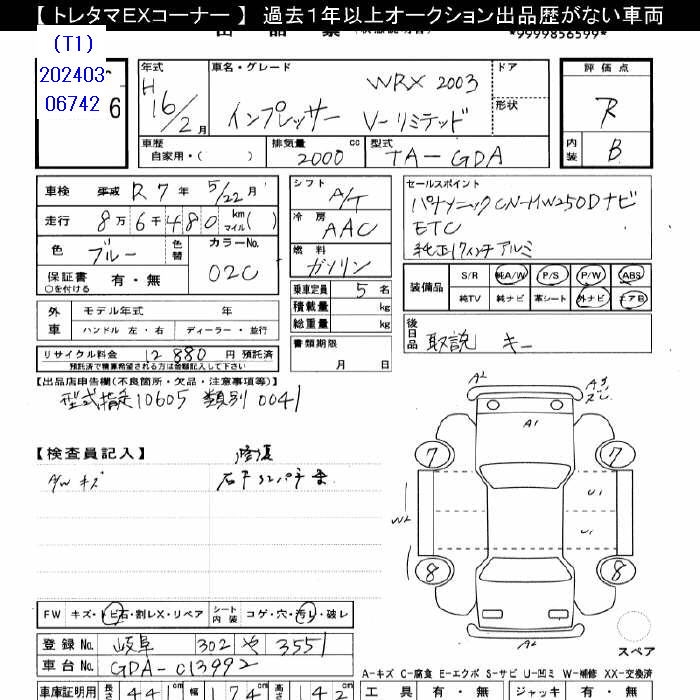 【 トレタマEXコーナー 】 過去１年以上オークション出品歴がない車両
*9999856599*
(T1)
202403
06742
6
年式 H 16/2月
車名・グレード WRX 2003
インプレッサー V-リミテッド
ドア
形状
評価点 R
内装 B
車歴 自家用・( )
排気量 2000 cc
型式 TA-GDA
車検 平成 R 7年 5/22月
走行 8万6千480 km マイル( )
色 ブルー 色替
カラーNo. 02C
保証書 有・無
○を付ける
シフト A/T
冷房 AAC
燃料 ガソリン
乗車定員 5名
積載量 kg
総重量 kg
書類期限 月 日
セールスポイント
パナソニックCN-HW250Dナビ
ETC
純正17インチアルミ
装備品 S/R 純A/W P/S P/W ABS
純TV 純ナビ 革シート 外ナビ エアB
外車 モデル年式 年
ハンドル 左・右 ディーラー・並行
後日品 取説 キー
リサイクル料金 12880 円 預託済
預託済で積算希望される方は金額記入して下さい
【出品店申告欄(不良箇所・欠品・注意事項等)】
型式指定10605 類別 0041
【検査員記入】
修復
キズ
A2
A1
7 7
U1
W2
U1
8 8
A2
スペア
FW キズ・トビ石・割レX・リペア シート内装 コゲ・穴・汚レ・破レ
登録No. 岐阜 302 や 3551
車台No. GDA-013992
A-キズ C-腐食 E-エクボ S-サビ U-凹ミ W-補修 XX-交換済
車庫証明用 長さ 441cm 幅 174cm 高さ 142cm
工具 有・無 ジャッキ 有・無